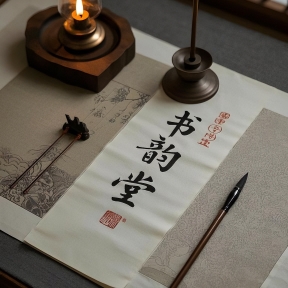 书韵堂